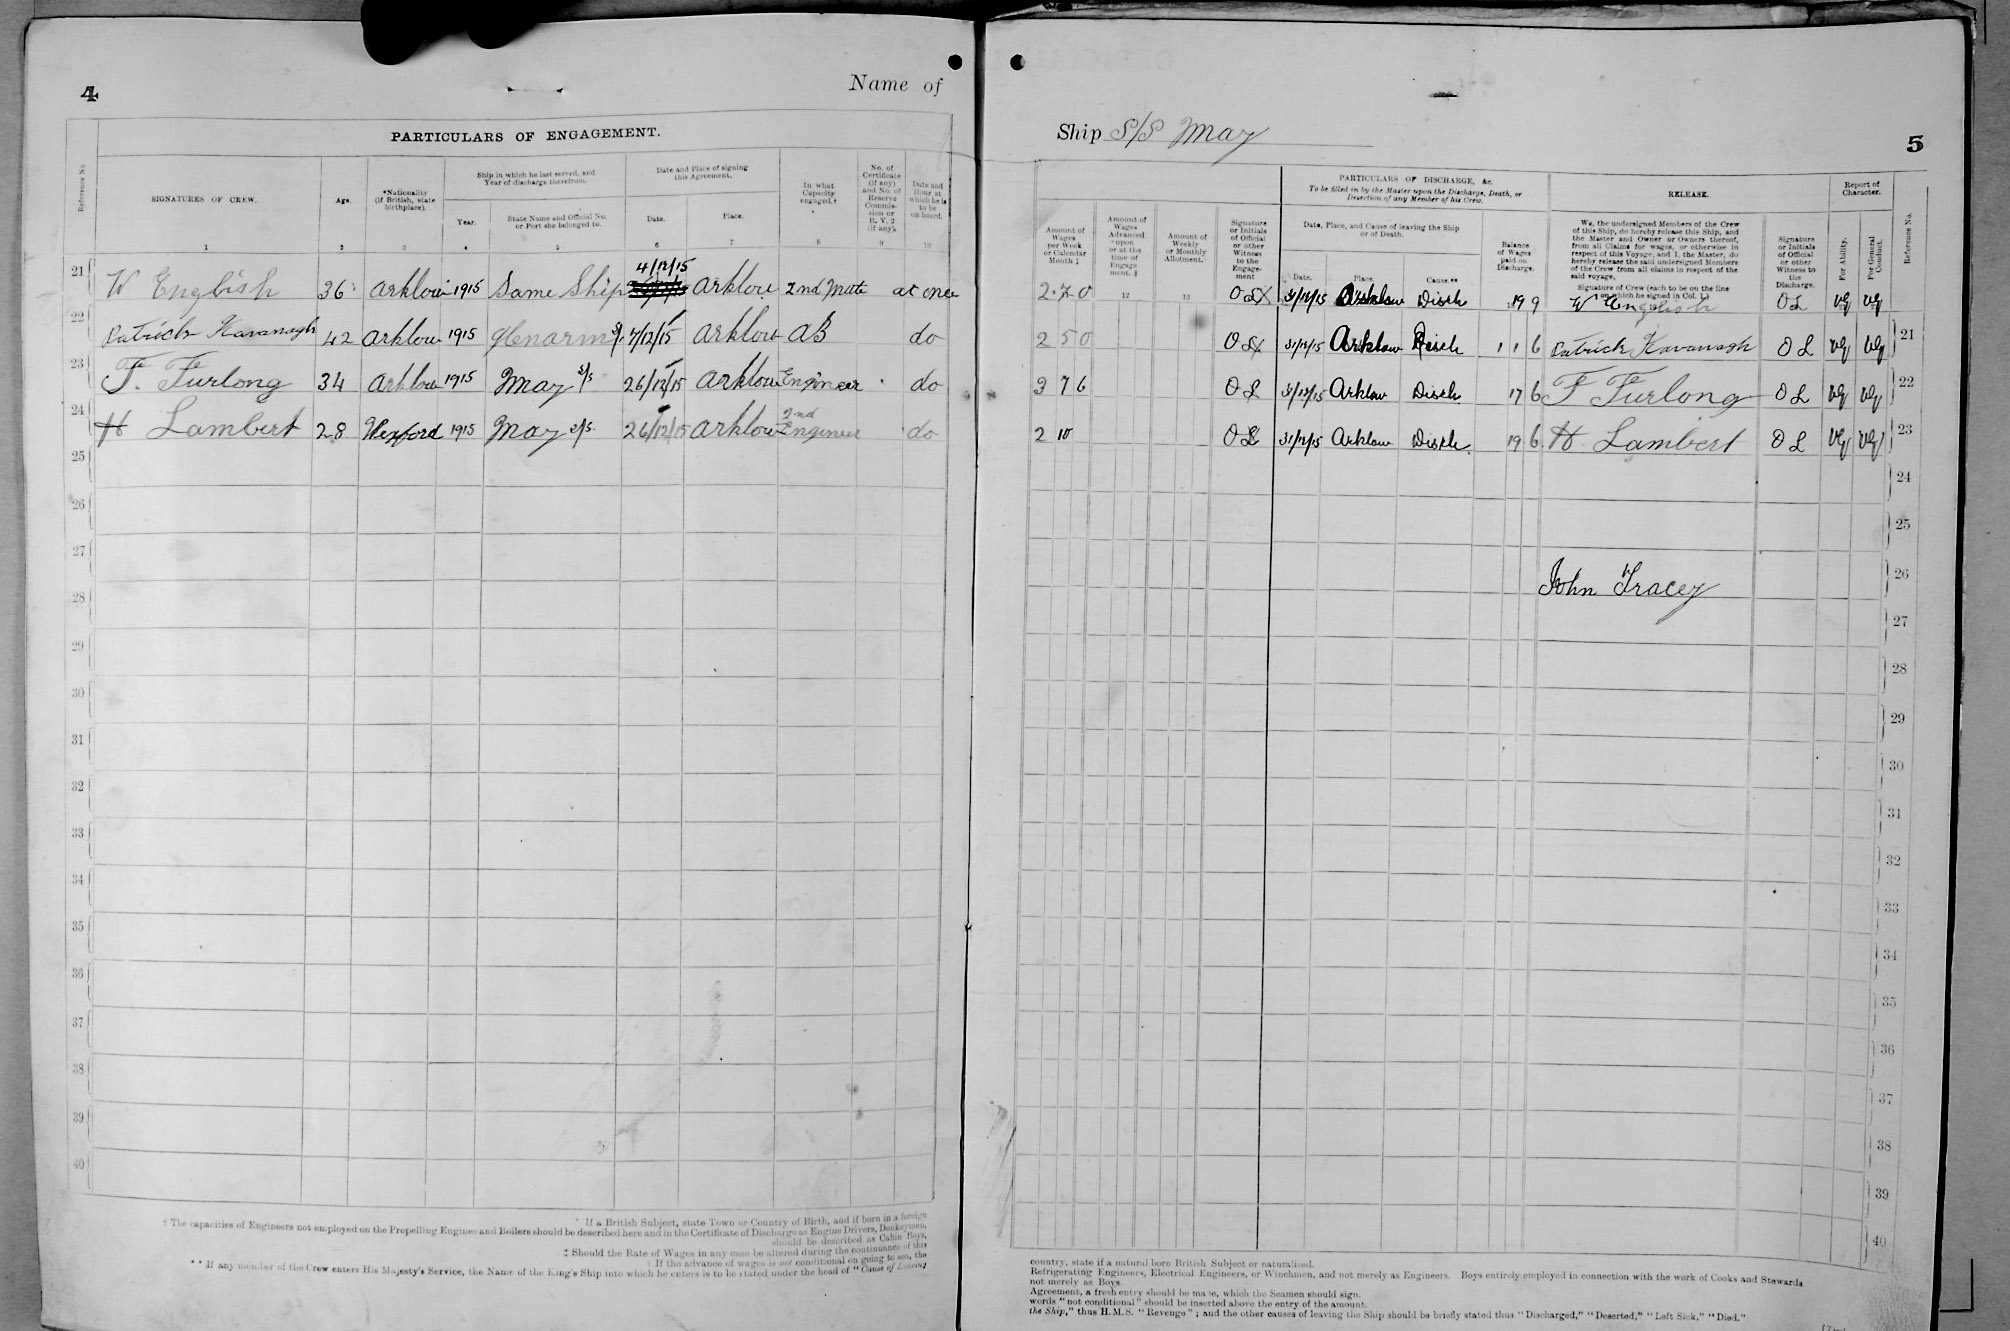 4
Name of
PARTICULARS OF ENGAGEMENT.
Reference No.
SIGNATURES OF CREW.
Age.
*Nationality (if British, state birthplace).
Ship in which he last served, and Year of discharge therefrom.
Year.
State Name and Official No. or Port she belonged to.
Date and Place of signing this Agreement.
Date.
Place.
In what Capacity engaged.†
No. of Certificate (if any) and No. of Reserve Commission or R.V.2 (if any).
Date and Hour at which he is to be on board.
1 2 3 4 5 6 7 8 9 10
21 W English 36 Arklow 1915 Same Ship 4/12/15 Arklow 2nd Mate at once
22 Patrick Kavanagh 42 Arklow 1915 Glenarm s/s 7/12/15 Arklow AB do
23 F. Furlong 34 Arklow 1915 May s/s 26/12/15 Arklow Engineer do
24 H Lambert 28 Wexford 1915 May s/s 26/12/15 Arklow 2nd Engineer do
25
26
27
28
29
30
31
32
33
34
35
36
37
38
39
40
* If a British Subject, state Town or Country of Birth, and if born in a foreign
† The capacities of Engineers not employed on the Propelling Engines and Boilers should be described here and in the Certificate of Discharge as Engine Drivers, Donkeymen,
should be described as Cabin Boys,
‡ Should the Rate of Wages in any case be altered during the continuance of this
If the advance of wages is not conditional on going to sea, the
** If any member of the Crew enters His Majesty's Service, the Name of the King's Ship into which he enters is to be stated under the head of "Cause of Leaving
Ship S/S May
5
Amount of Wages per Week or Calendar Month ‡
Amount of Wages Advanced upon or at the time of Engagement. §
Amount of Weekly or Monthly Allotment.
Signature or Initials of Official or other Witness to the Engagement
PARTICULARS OF DISCHARGE, &c.
To be filled in by the Master upon the Discharge, Death, or Desertion of any Member of his Crew.
Date, Place, and Cause of leaving the Ship or of Death.
Date.
Place.
Cause.**
Balance of Wages paid on Discharge.
RELEASE.
We, the undersigned Members of the Crew of this Ship, do hereby release this Ship, and the Master and Owner or Owners thereof, from all Claims for wages, or otherwise in respect of this Voyage, and I, the Master, do hereby release the said undersigned Members of the Crew from all claims in respect of the said voyage.
Signature of Crew (each to be on the line on which he signed in Col. 1.)
Signature or Initials of Official or other Witness to the Discharge.
Report of Character.
For Ability.
For General Conduct.
Reference No.
12 13
2 7 0 O L 31/12/15 Arklow Disch 19 9 W English O L VG VG
2 5 0 O L 31/12/15 Arklow Disch 1 1 6 Patrick Kavanagh O L VG VG 21
3 7 6 O L 31/12/15 Arklow Disch 17 6 F Furlong O L VG VG 22
2 10 O L 31/12/15 Arklow Disch. 19 6 H Lambert O L VG VG 23
24
25
John Tracey 26
27
28
29
30
31
32
33
34
35
36
37
38
39
40
country, state if a natural born British Subject or naturalised.
Refrigerating Engineers, Electrical Engineers, or Winchmen, and not merely as Engineers. Boys entirely employed in connection with the work of Cooks and Stewards
not merely as Boys.
Agreement, a fresh entry should be made, which the Seamen should sign.
words "not conditional" should be inserted above the entry of the amount.
the Ship," thus H.M.S. "Revenge"; and the other causes of leaving the Ship should be briefly stated thus "Discharged," "Deserted," "Left Sick," "Died."